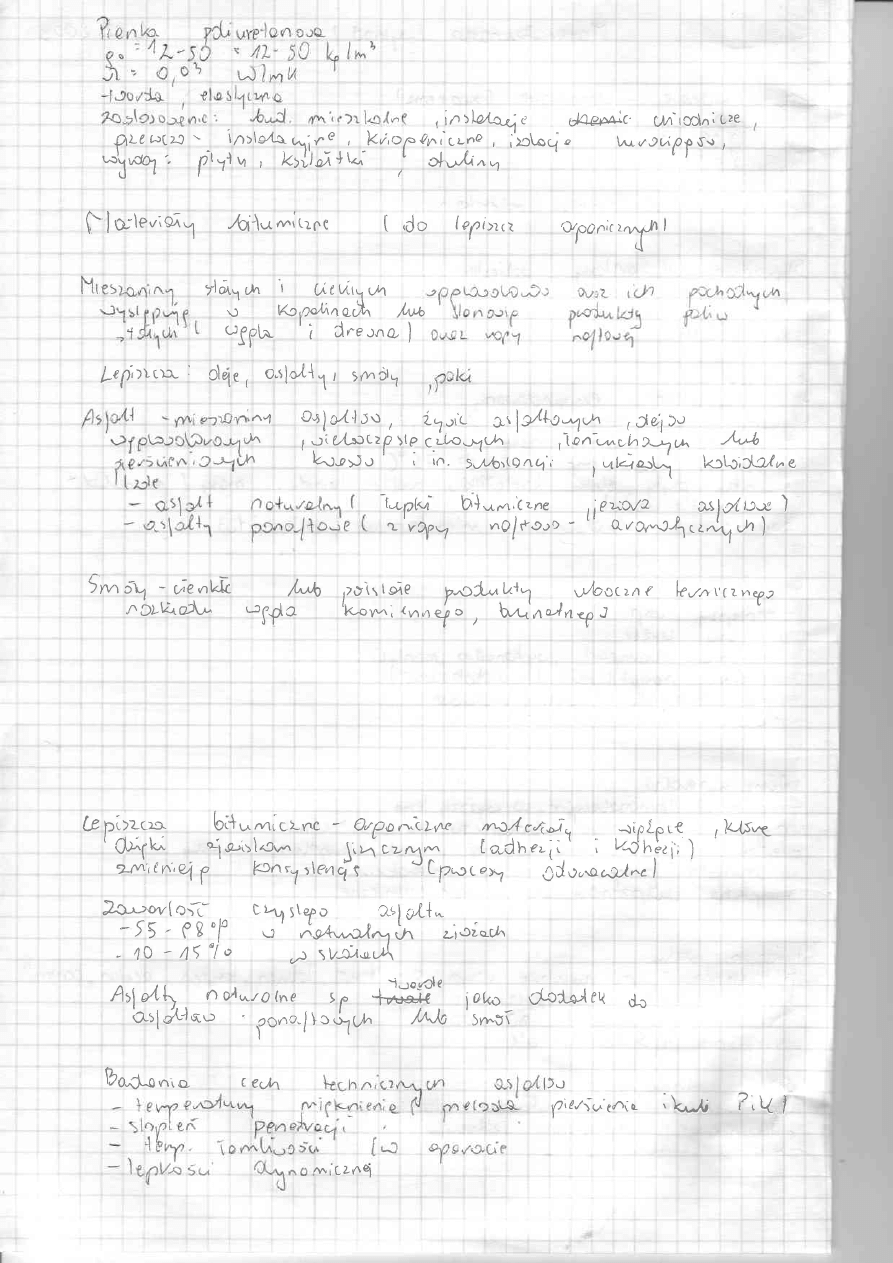 Pianka poliuretanowa
ρo = 12-50 = 12-50 kg/m³
λ = 0,03 W/mK
twarda, elastyczna
zastosowanie: bud. mieszkalne, instalacje chłodnicze,
grzewczo-instalacyjne, kriogeniczne, izolacje rurociągów,
wyroby: płyty, kształtki, otuliny
Materiały bitumiczne (do lepiszcz organicznych)
Mieszaniny stałych i ciekłych węglowodorów oraz ich pochodnych
występują w kopalinach lub stanowią produkty paliw
stałych (węgla i drewna) oraz ropy naftowej
Lepiszcza: oleje, asfalty, smoły, paki
Asfalt - mieszaniny asfaltów, żywic asfaltowych, olejów
węglowodorowych, wielocząsteczkowych, łańcuchowych lub
pierścieniowych kwasów i in. substancji, układy koloidalne
- asfalt naturalny (łupki bitumiczne, jeziora asfaltowe)
- asfalty ponaftowe (z ropy naftowo- aromatycznych)
Smoły - ciekłe lub półstałe produkty uboczne termicznego
rozkładu węgla kamiennego, brunatnego
Lepiszcza bitumiczne - organiczne materiały wiążące, które
dzięki zjawiskom fizycznym (adhezji i kohezji)
zmieniają konsystencję (procesy odwracalne)
Zawartość czystego asfaltu
- 55 - 98% w naturalnych złożach
- 10 - 15% w skałach
Asfalty naturalne są twarde jako dodatek do
asfaltów ponaftowych lub smół
Badania cech technicznych asfaltów
- temperatury mięknienia metoda pierścienia i kuli PiK
- stopień penetracji
- temp. łamliwości (w aparacie
- lepkości dynamicznej